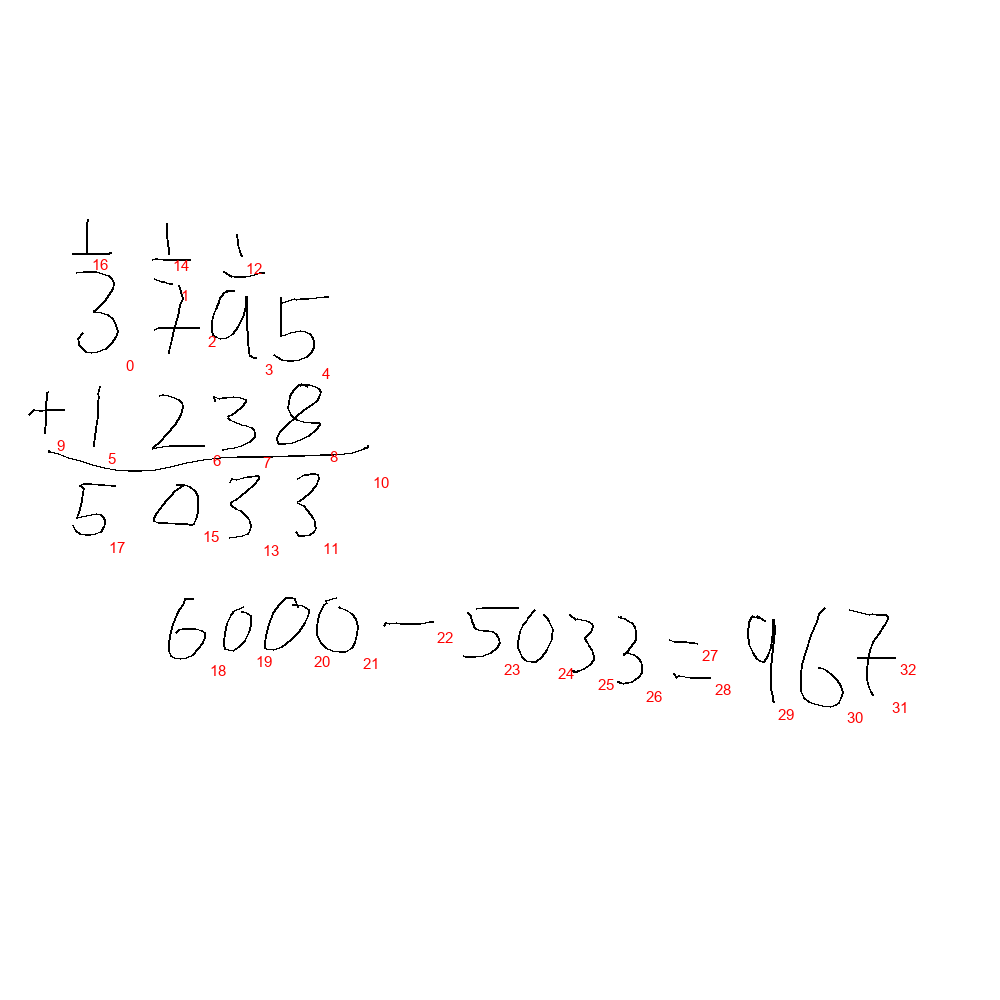 1 1 1
16 14 12
3795
1
2
0 3 4
+1238
9 5 6 7 8
10
5033
17 15 13 11
6000-5033=967
18 19 20 21 22 23 24 25 26 27 28 29 30 31 32